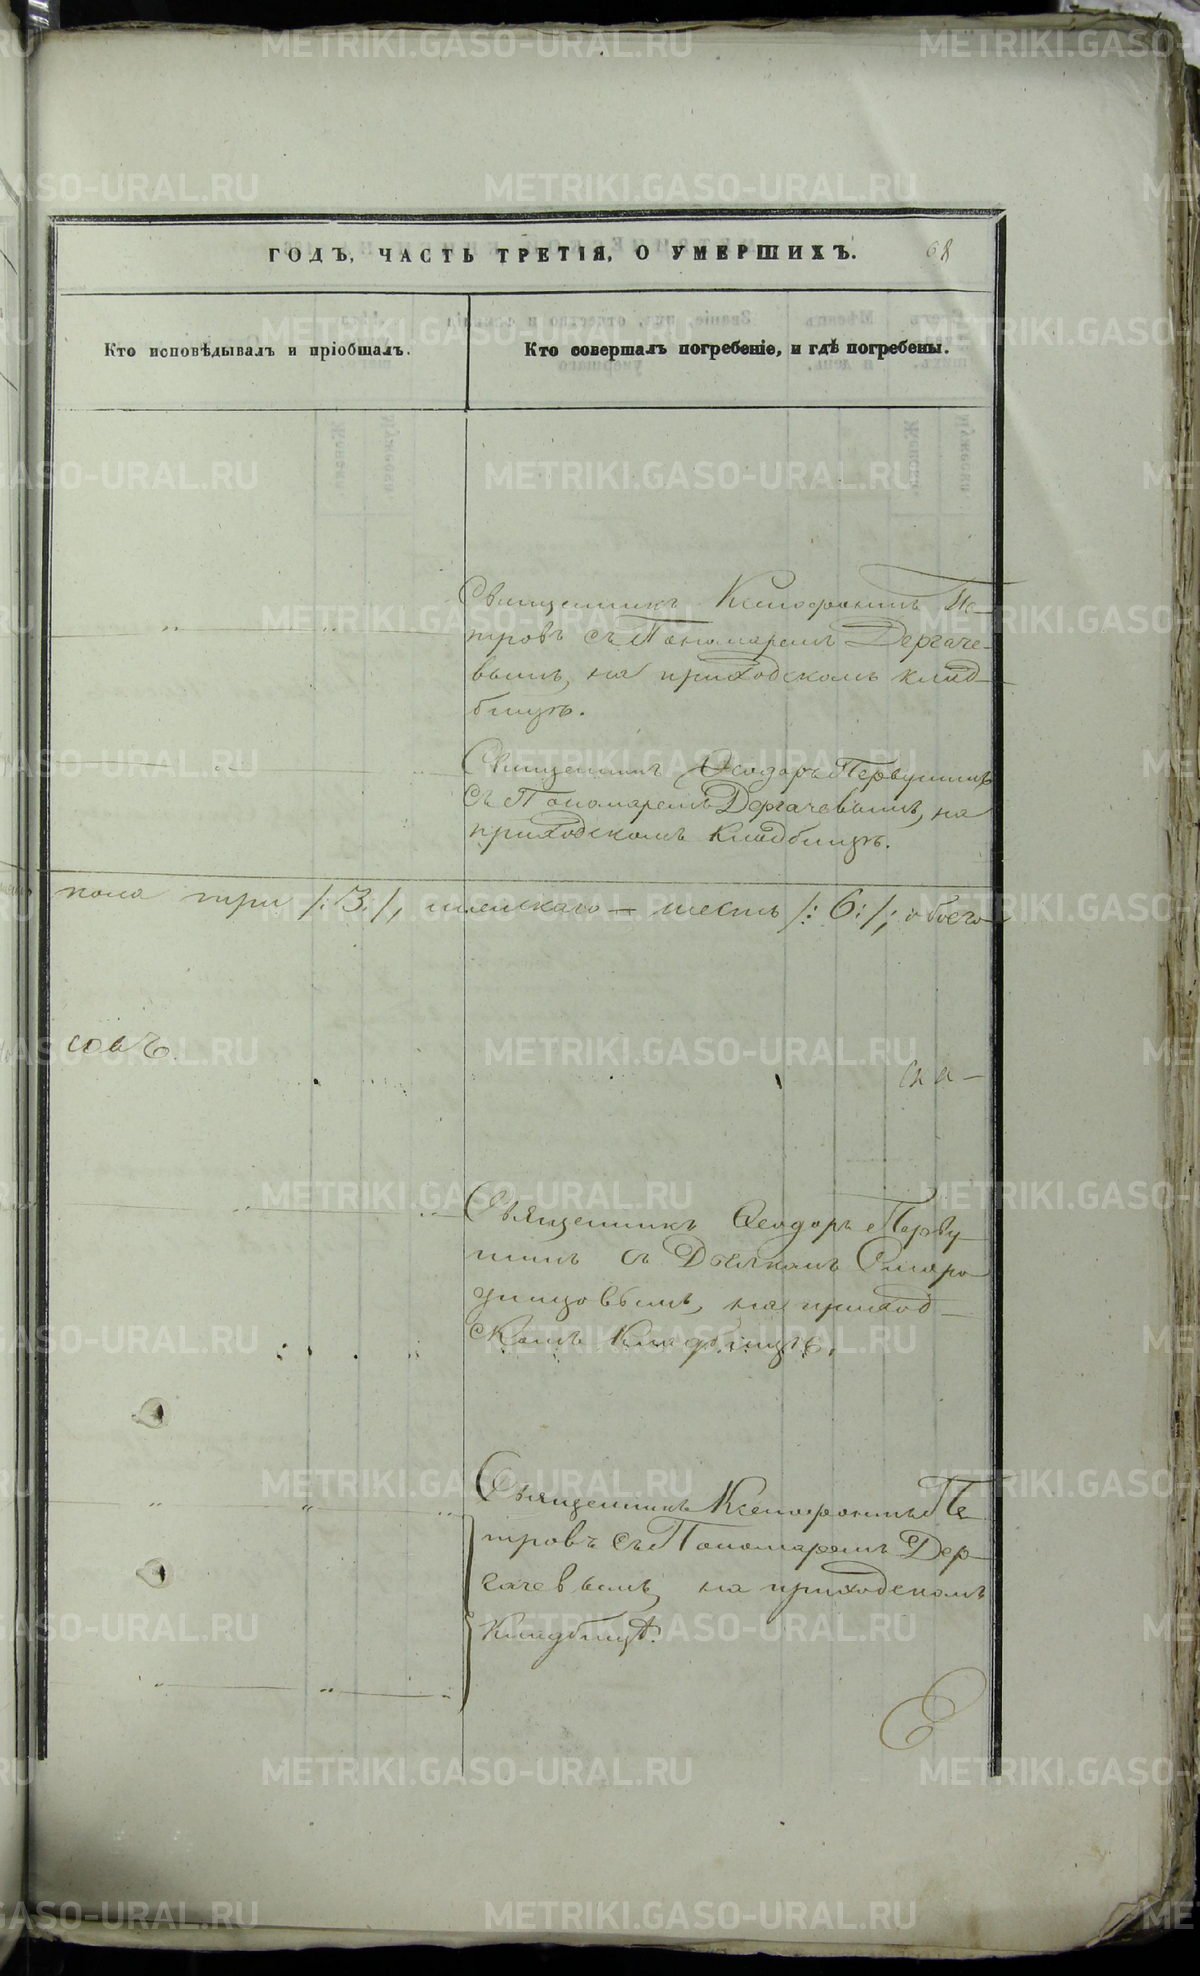 ГОДЪ, ЧАСТЬ ТРЕТІЯ, О УМЕРШИХЪ.
68
Кто исповѣдывалъ и пріобщалъ.
Кто совершалъ погребеніе, и гдѣ погребены.
Священникъ Ксенофонтъ Пе-
тровъ съ Пономаремъ Дергаче-
вымъ, на приходскомъ клад-
бищѣ.
Священникъ Ѳеодоръ Первушинъ
съ Пономаремъ Дергачевымъ, на
приходскомъ кладбищѣ.
пола три /:3:/, женскаго — шесть /:6:/, обоего
Священникъ Ѳеодоръ Перву-
шинъ съ Дьякомъ
на приход-
скомъ кладбищѣ.
Священникъ Ксенофонтъ Пе-
тровъ съ Пономаремъ Дер-
гачевымъ, на приходскомъ
кладбищѣ.
METRIKI.GASO-URAL.RU